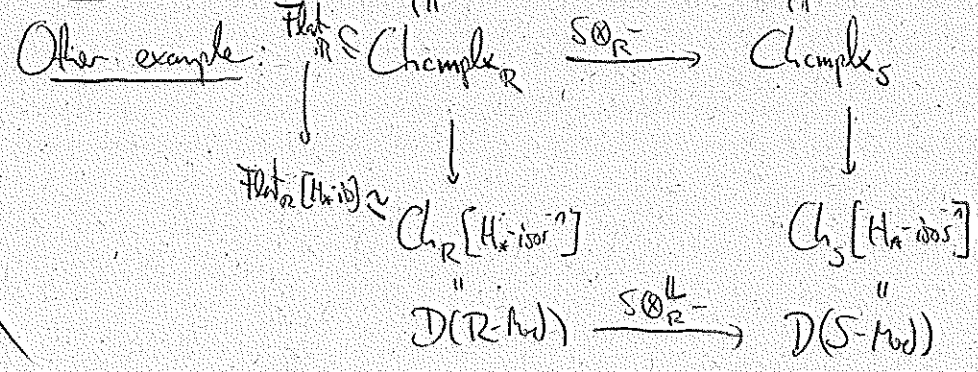 Other example: Flat_R ⊆ Chcmplx_R —S⊗_R-→ Chcmplx_S
Flat_R[H_*-iso] ≃ Ch_R[H_*-isos⁻¹] Ch_S[H_*-isos⁻¹]
" "
D(R-Mod) —S⊗^L_R-→ D(S-Mod)